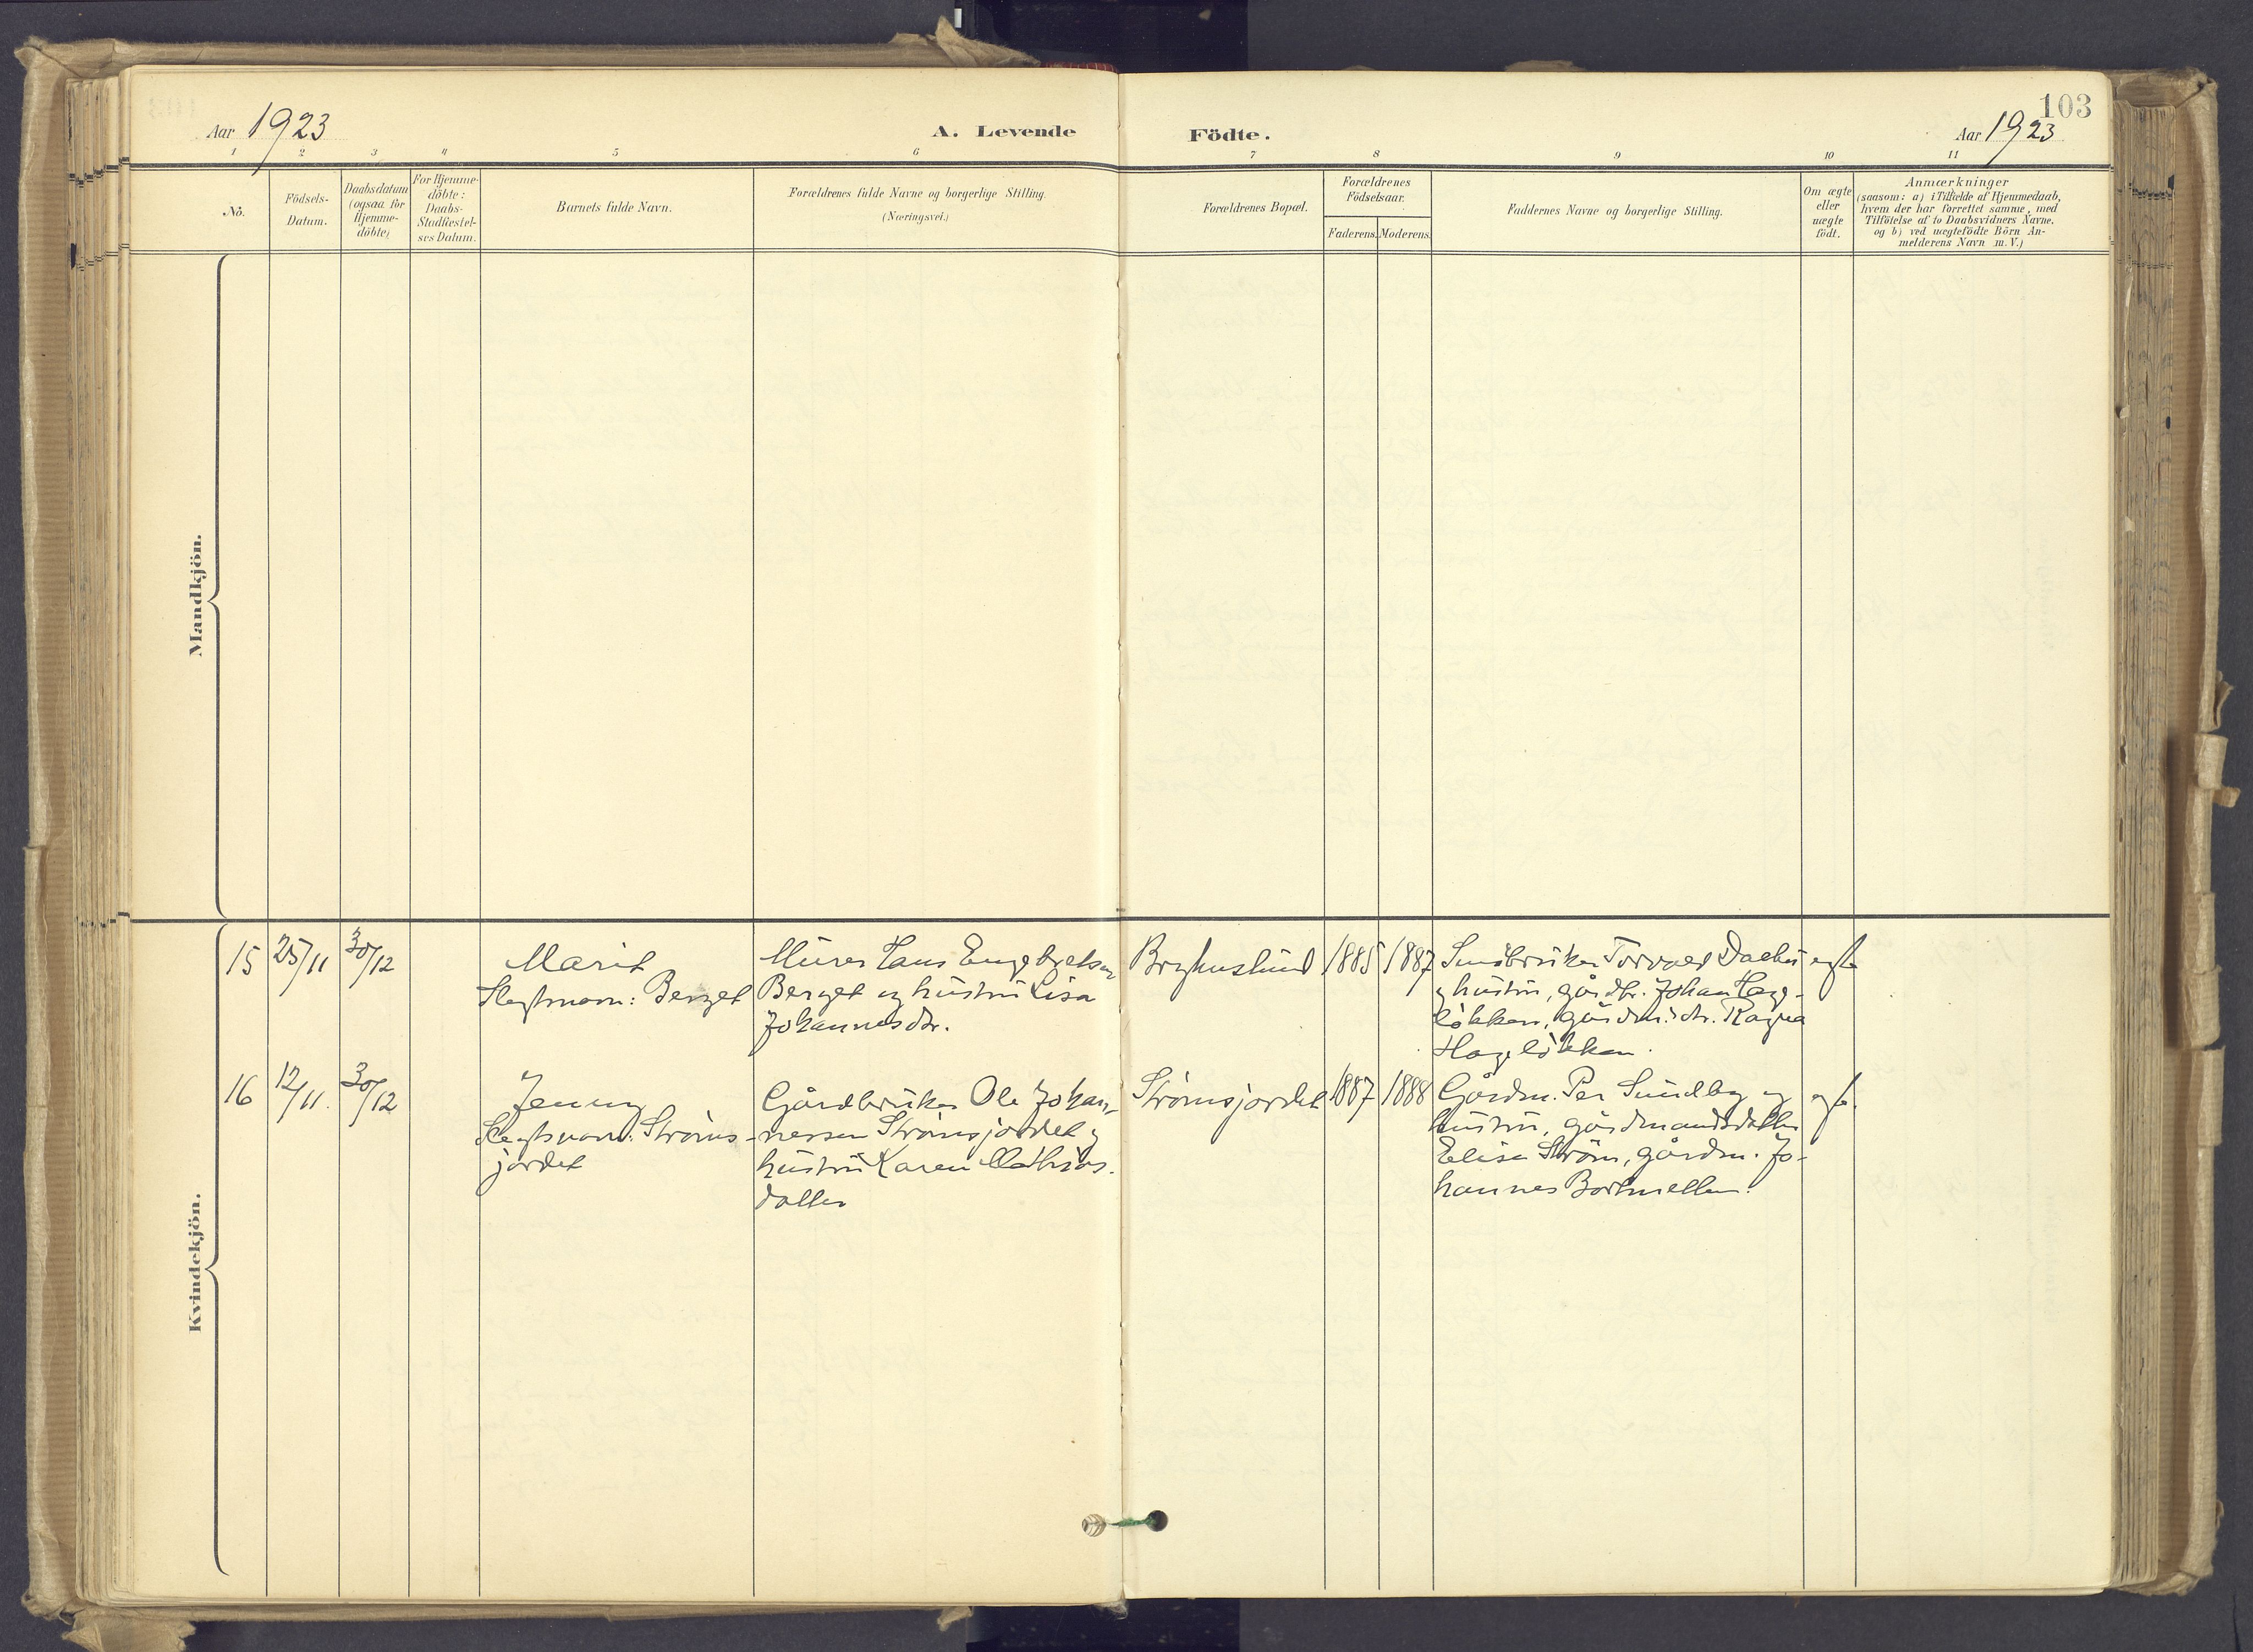 103
Aar 1923
A. Levende
Födte.
Aar 1923
1 2 3 4 5 6 7 8 9 10 11
No.
Födsels-
Datum.
Daabsdatum
(ogsaa for
Hjemme-
döbte)
For Hjemme-
döbte:
Daabs-
Stadfæstel-
ses Datum.
Barnets fulde Navn.
Forældrenes fulde Navne og borgerlige Stilling.
(Næringsvei.)
Forældrenes Bopæl.
Forældrenes
Födselsaar.
Faderens.
Moderens.
Faddernes Navne og borgerlige Stilling.
Om ægte
eller
uægte
födt.
Anmærkninger
(saasom: a) i Tilfælde af Hjemmedaab,
hvem der har forrettet samme, med
Tilföielse af to Daabsvidners Navne.
og b) ved uægtefödte Börn An-
melderens Navn m. V.)
Mandkjön.
Kvindekjön.
15
25/11
30/12
Marit
Slegtsnavn: Berget
Murer Hans Engebretsen
Berget og hustru Lisa
Johannesdtr.
Bryhuslund
1885
1887
Småbruker Torvald
og hustru, gårdbr. Johan Hage-
løkken, gårdm.dtr. Ragna
Hageløkken.
egte
16
12/11.
30/12
Jenny
Slegtsnavn: Strøms-
jordet
Gårdbruker Ole Johan-
nessen Strømsjordet og
hustru Karen Mathias-
datter
Strømsjordet
1887
1888
Gårdm. Per Sundby og
hustru, gårdmandsdatter
Elise Strøm, gårdm. Jo-
hannes
egte.